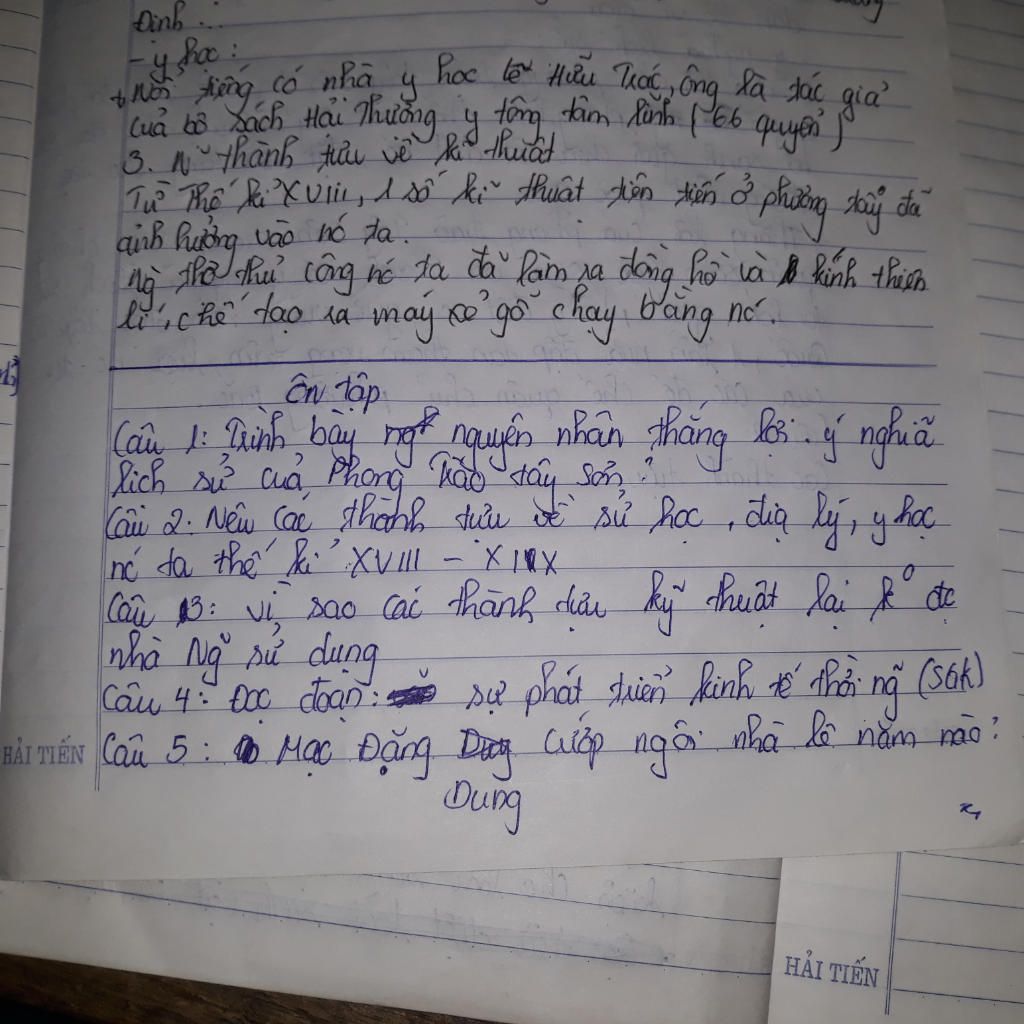 Định...
- y học:
+ Nổi tiếng có nhà y học Lê Hữu Trác, ông là tác giả
của bộ sách Hải Thượng y tông tâm lĩnh (66 quyển)
3. N~ thành tựu về kĩ thuật
Từ Thế kỉ XVIII, 1 số kĩ thuật tiên tiến ở phương tây đã
ảnh hưởng vào nó ta.
Ng thợ thủ công nó ta đã làm ra đồng hồ và kính thiên
lí, chế tạo ra máy xẻ gỗ chạy bằng nó.
Ôn tập
Câu 1: Trình bày nguyên nhân thắng lợi. ý nghĩã
lịch sử của Phong trào tây sơn?
Câu 2. Nêu các thành tựu về sử học, địa lý, y học
nó ta thế kỉ XVIII - XIX
Câu 3: vì sao các thành tựu kỹ thuật lại k° đc
nhà Ng~ sử dụng
Câu 4: Đọc đoạn: sự phát triển kinh tế thời ng~ (SGK)
Câu 5: Mạc Đặng Dung cướp ngôi nhà lê năm nào?
HẢI TIẾN
HẢI TIẾN